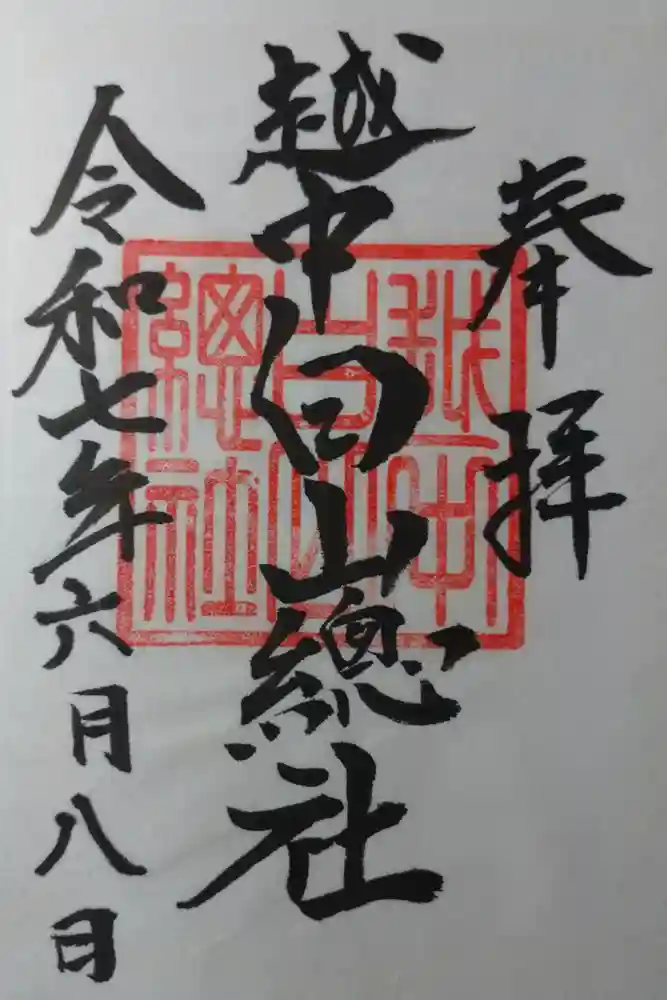 奉拝
越中白山總社
令和七年六月八日
越中
白山
總社